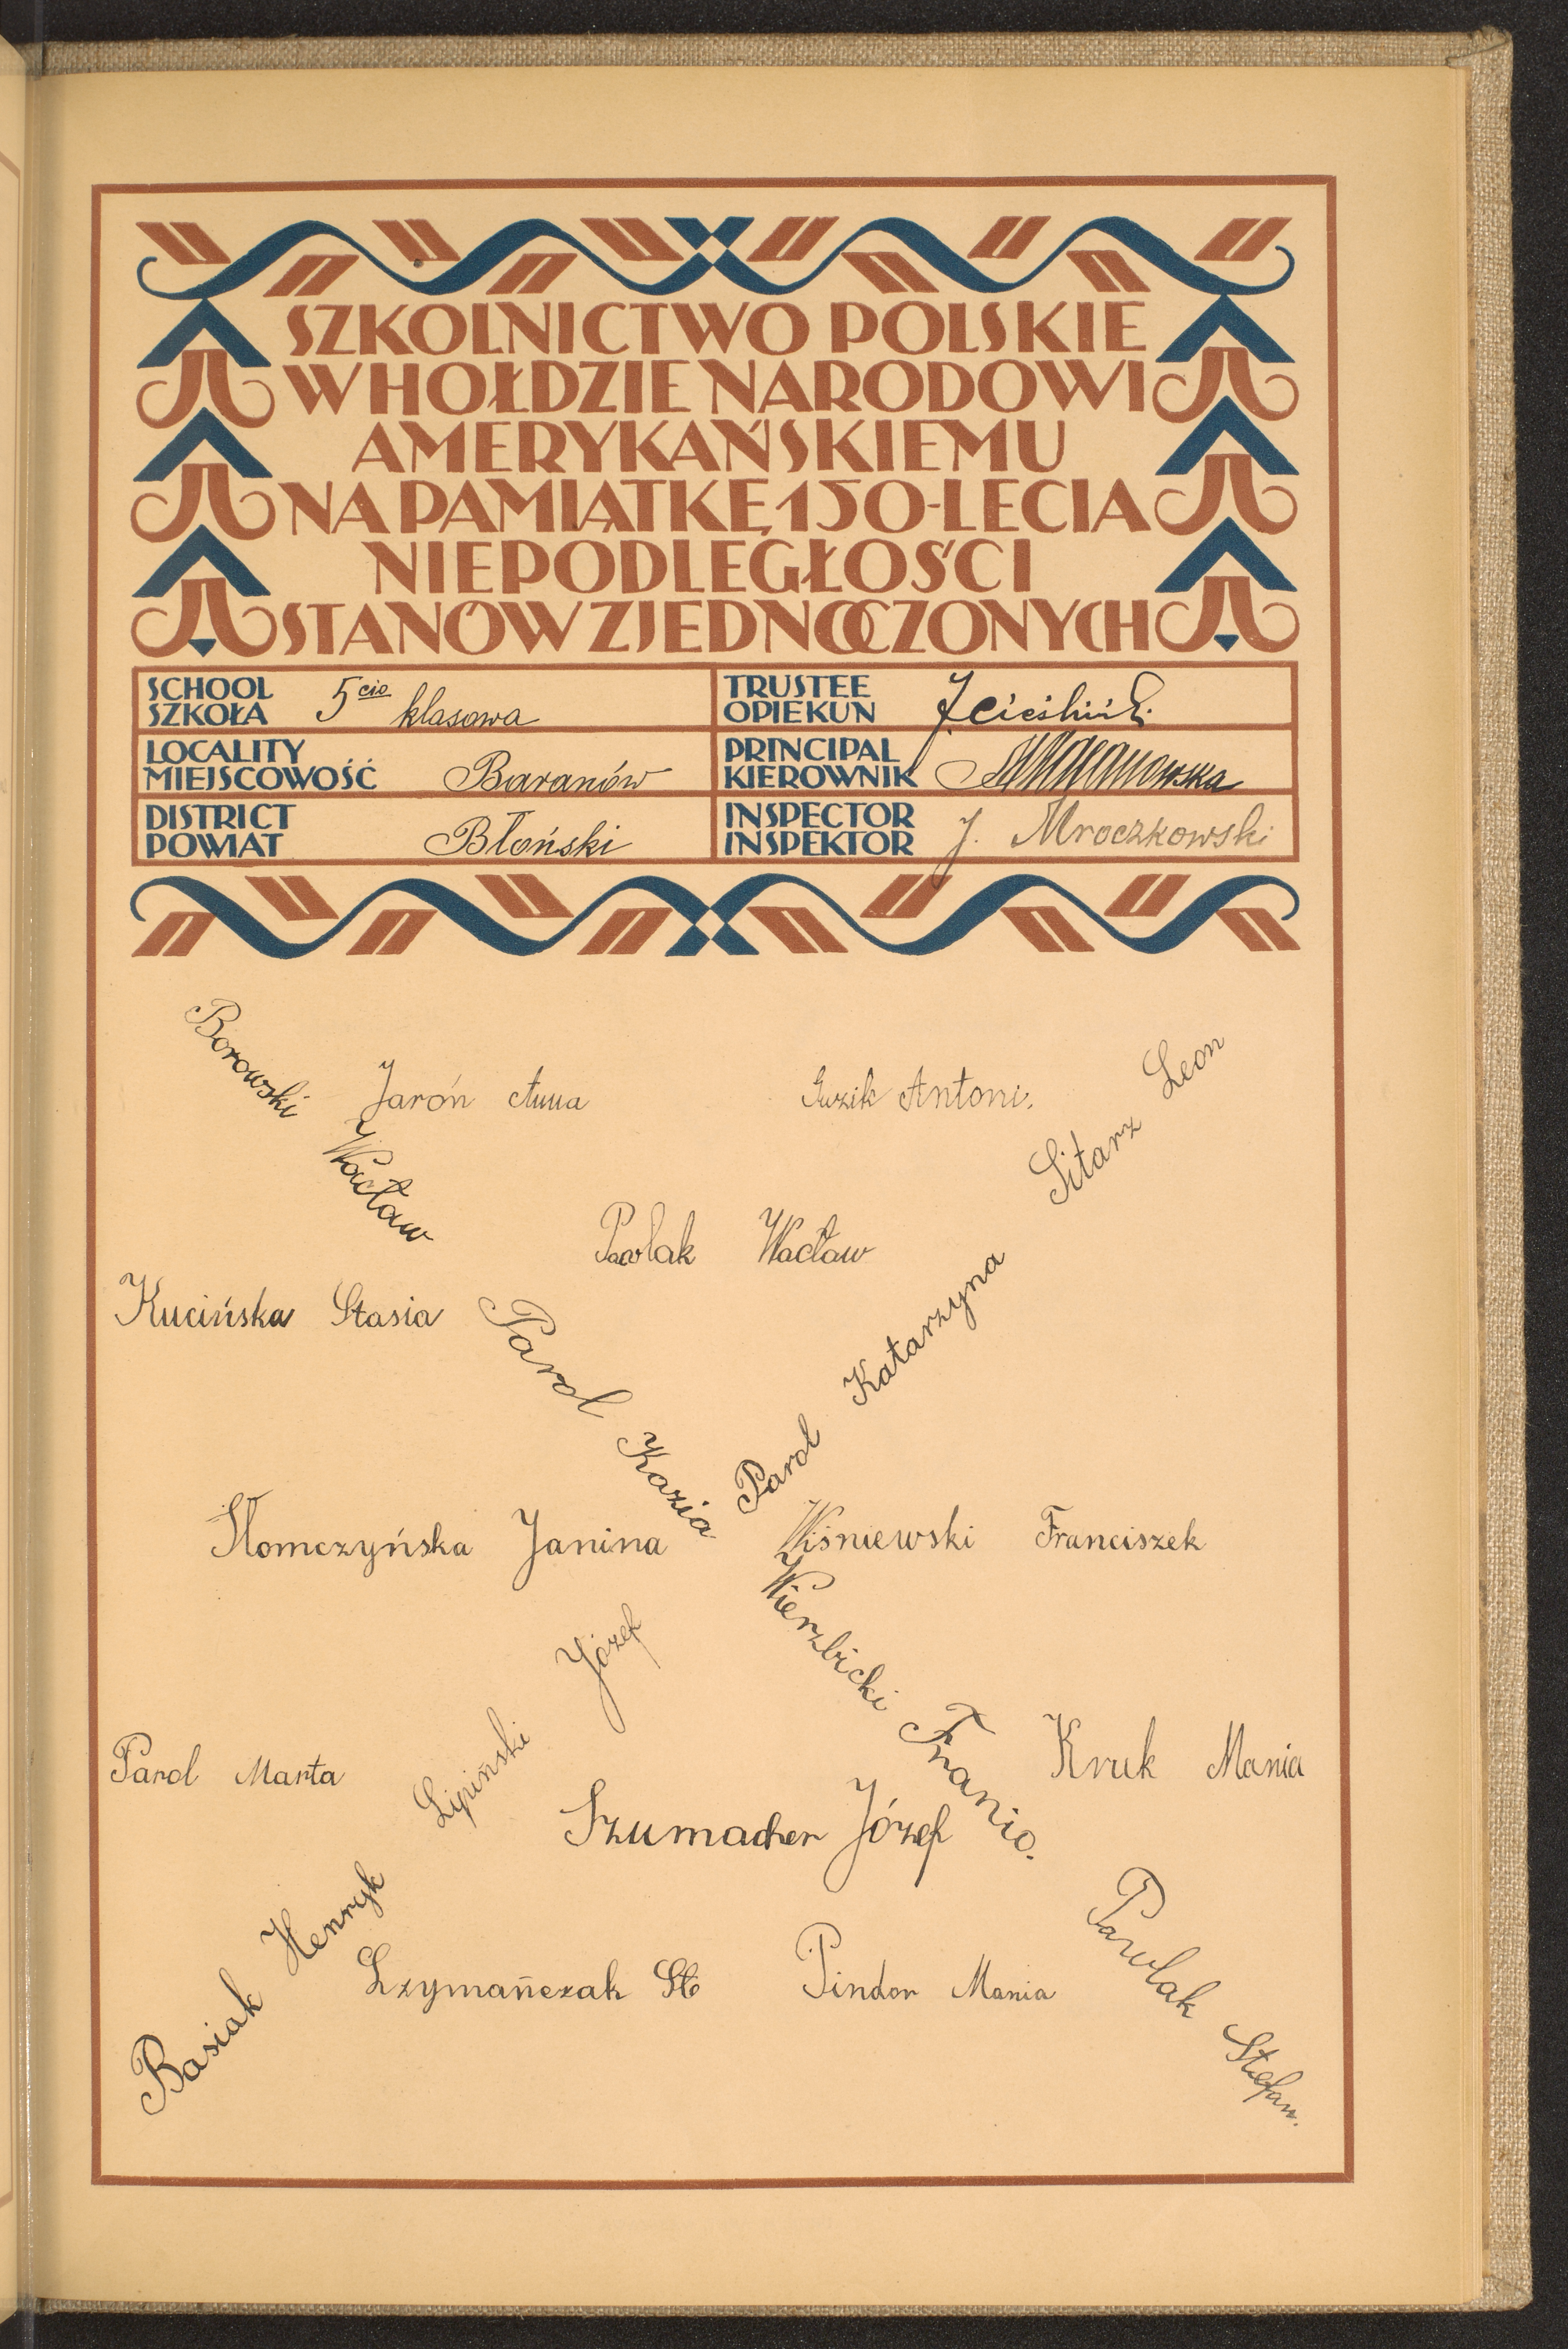 SZKOLNICTWO POLSKIE
W HOŁDZIE NARODOWI
AMERYKAŃSKIEMU
NA PAMIĄTKĘ 150-LECIA
NIEPODLEGŁOŚCI
STANÓW ZJEDNOCZONYCH
SCHOOL
SZKOŁA
5cio klasowa
TRUSTEE
OPIEKUN
LOCALITY
MIEJSCOWOŚĆ
Baranów
PRINCIPAL
KIEROWNIK
DISTRICT
POWIAT
Błoński
INSPECTOR
INSPEKTOR
J. Mroczkowski
Borowski Wacław
Jaroń Anna
Guzik Antoni.
Sitarz Leon
Pawlak Wacław
Kucińska Stasia
Parol Kazia
Parol Katarzyna
Słomczyńska Janina
Wiśniewski Franciszek
Wierzbicki Franio.
Lipiński Józef
Parol Marta
Kruk Mania
Szumacher Józef
Basiak Henryk
Szymańczak St
Pindor Mania
Pawlak Stefan.